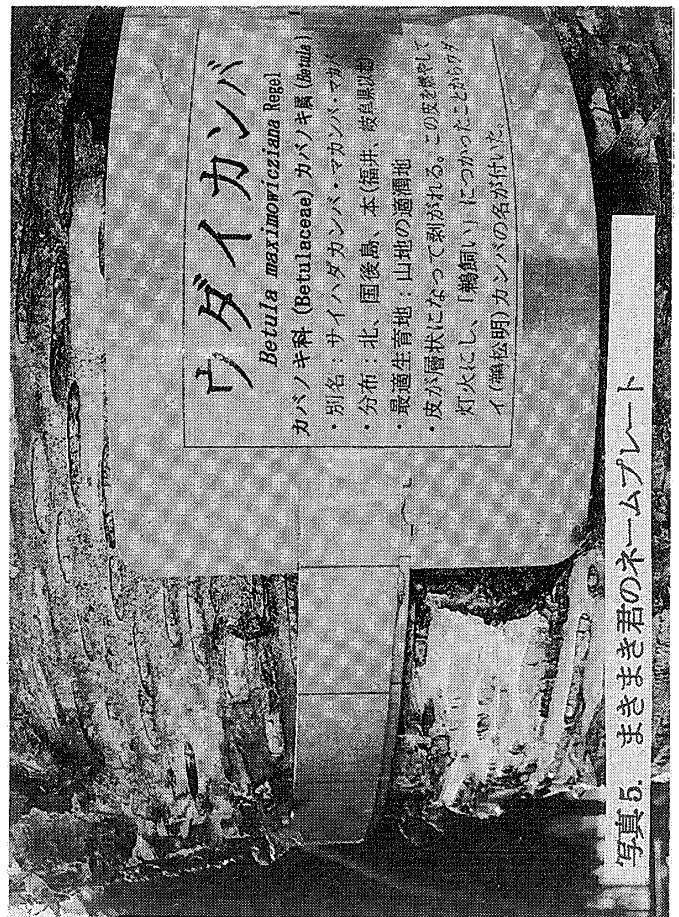 ウダイカンバ
Betula maximowicziana Regel
カバノキ科 (Betulaceae) カバノキ属 (Betula)
・別名：サイハダカンバ・マカンバ・マカバ
・分布：北、国後島、本(福井、岐阜県以北)
・最適生育地：山地の適潤地
・皮が層状になって剥がれる。この皮を燃やして
灯火にし、「鵜飼い」につかったことからウダ
イ(鵜松明)カンバの名が付いた。
写真5. まきまき君のネームプレート